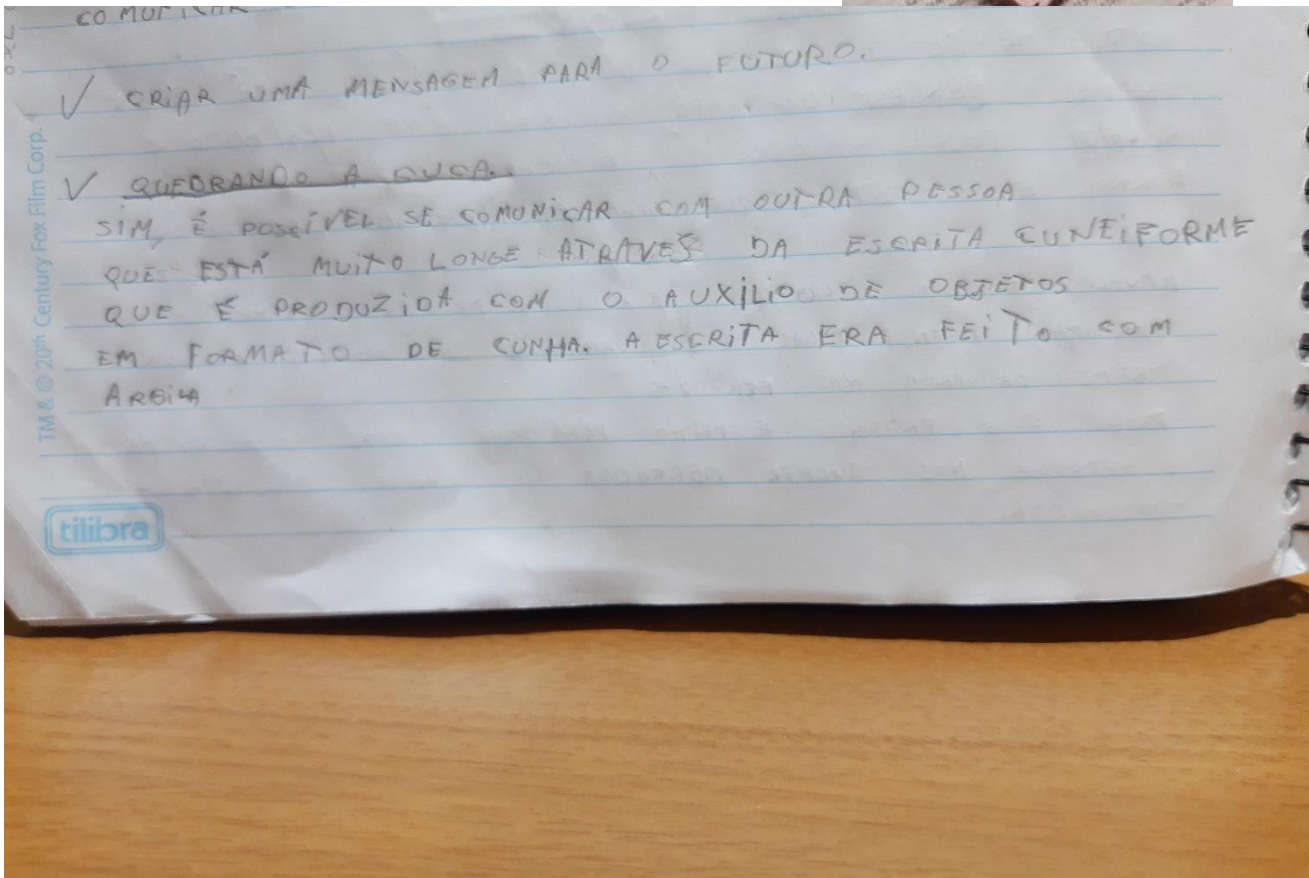 COMUNICAR
√ CRIAR UMA MENSAGEM PARA O FUTURO.
√ QUEBRANDO A CUCA.
SIM, É POSSÍVEL SE COMUNICAR COM OUTRA PESSOA
QUE ESTÁ MUITO LONGE ATRAVÉS DA ESCRITA CUNEIFORME
QUE É PRODUZIDA COM O AUXÍLIO DE OBJETOS
EM FORMATO DE CUNHA. A ESCRITA ERA FEITO COM
ARGILA
TM & © 20th Century Fox Film Corp.
tilibra